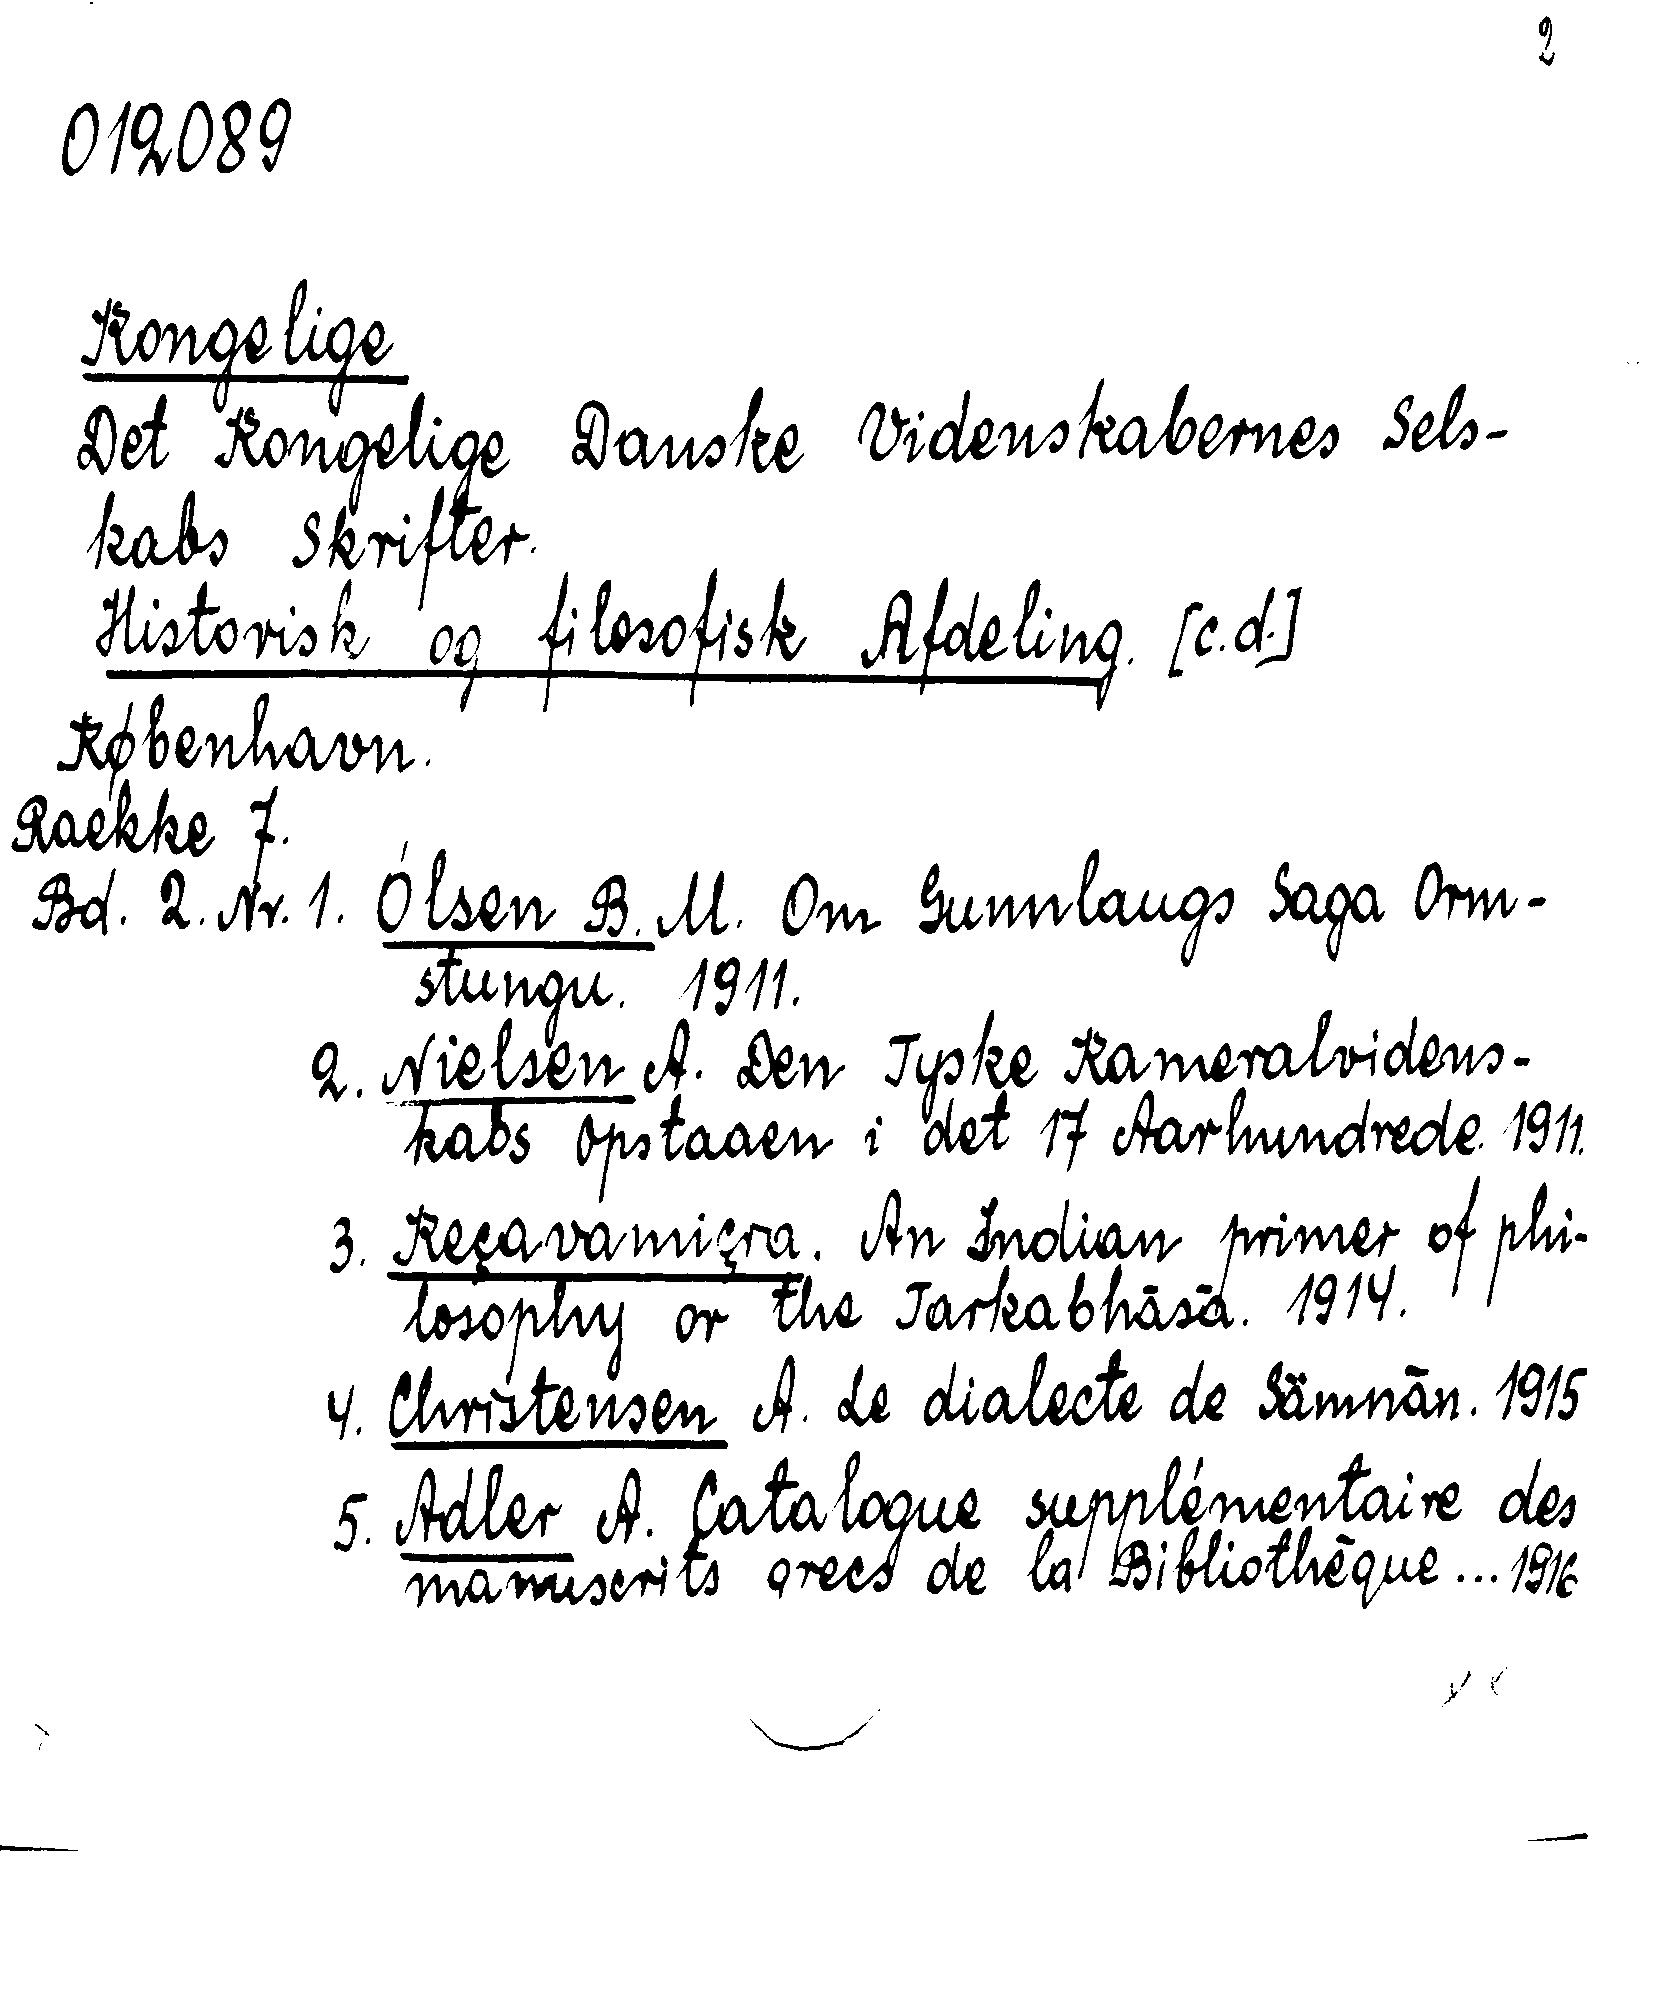 2
012089
Kongelige
Det Kongelige Danske Videnskabernes Sels-
kabs Skrifter.
Historisk og filosofisk Afdeling. [c.d.]
København.
Raekke 7.
Bd. 2. Nr. 1. Ólsen B. M. Om Gunnlaugs Saga Orm-
stungu. 1911.
2. Nielsen A. Den Tyske Kameralvidens-
kabs Opstaaen i det 17 Aarhundrede. 1911.
3. Keçavamiçra. An Indian primer of phi-
losophy or the Tarkabhāsā. 1914.
4. Christensen A. Le dialecte de Sämnān. 1915
5. Adler A. Catalogue supplémentaire des
manuscrits grecs de la Bibliothēque ... 1916